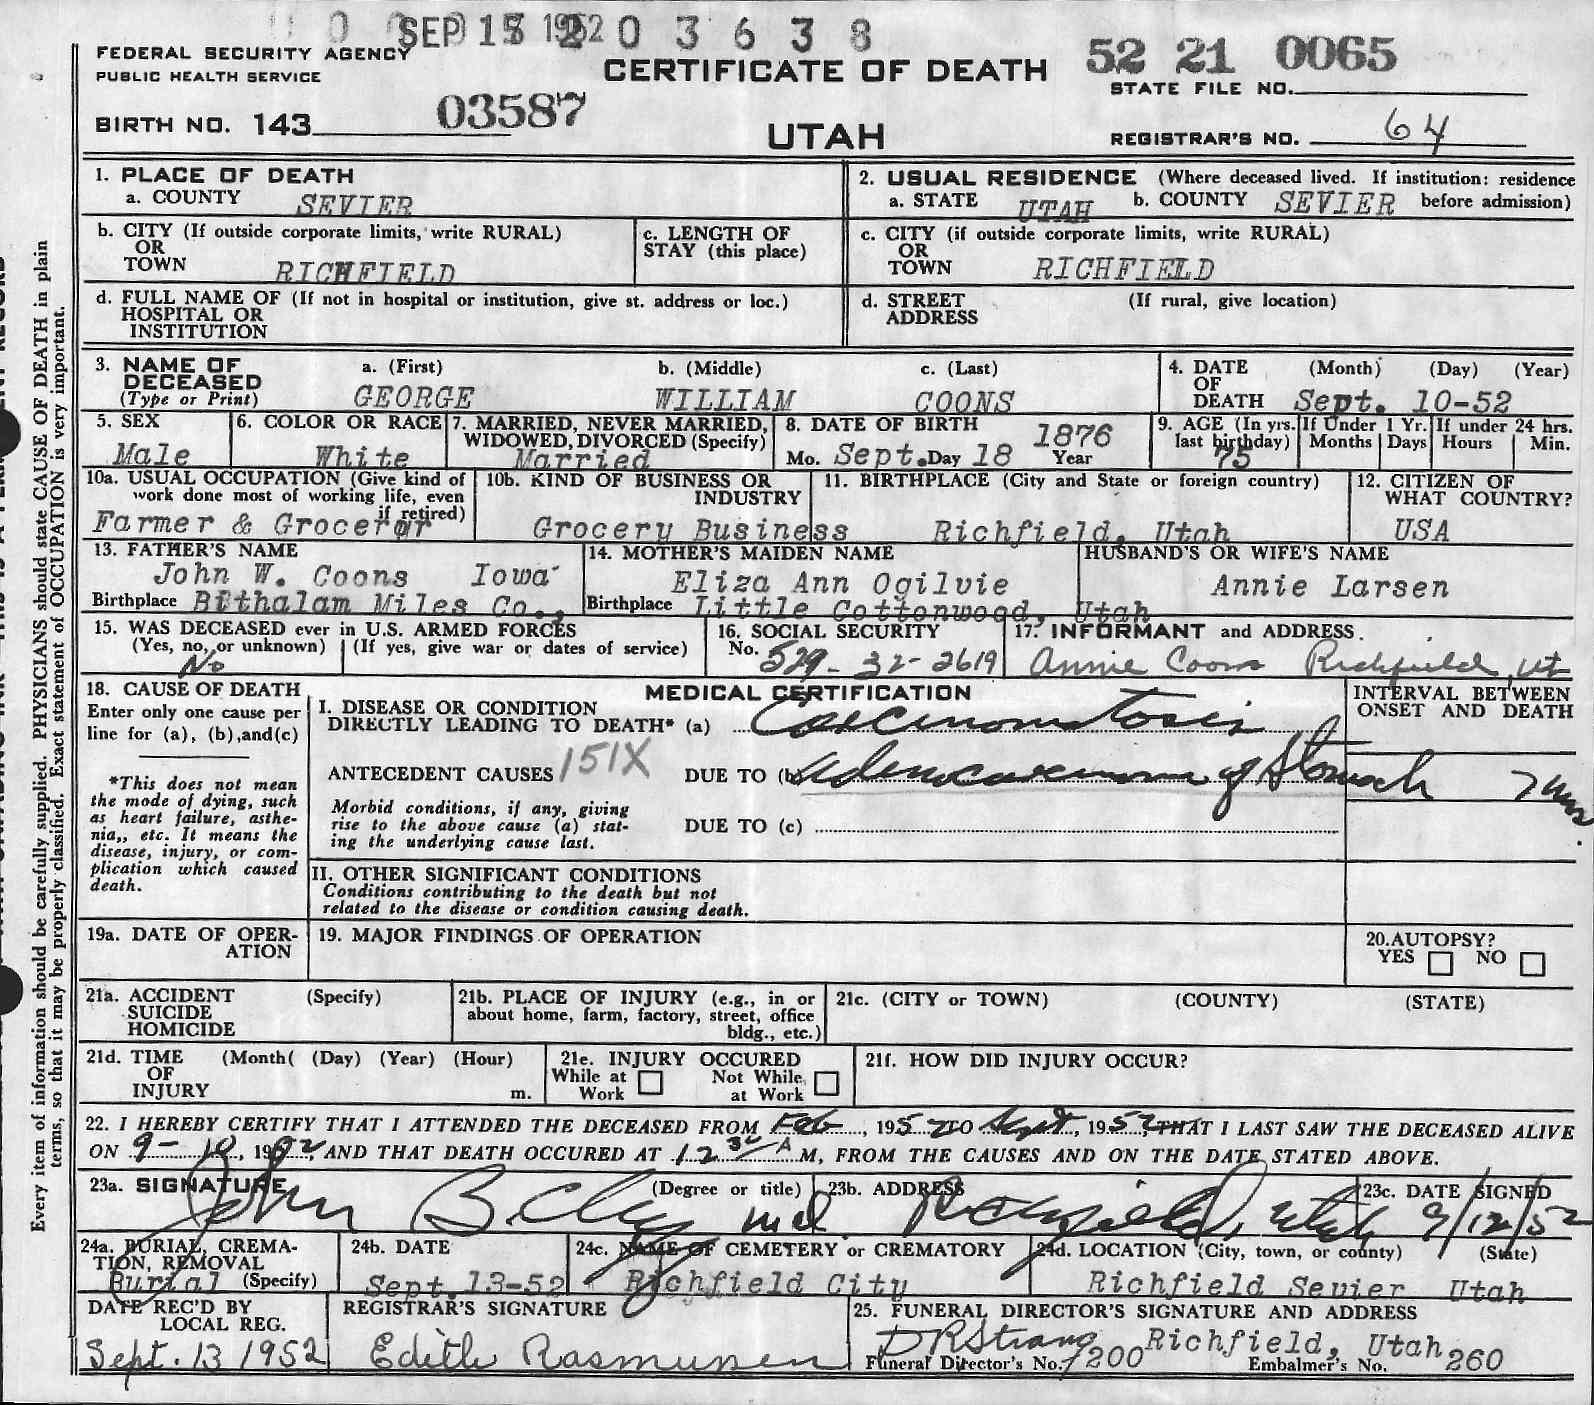 SEP 15 1952 0 3 6 3 8
FEDERAL SECURITY AGENCY
PUBLIC HEALTH SERVICE
CERTIFICATE OF DEATH
52 21 0065
STATE FILE NO.
BIRTH NO. 143 03587
UTAH
REGISTRAR'S NO. 64
1. PLACE OF DEATH
a. COUNTY SEVIER
2. USUAL RESIDENCE (Where deceased lived. If institution: residence before admission)
a. STATE UTAH b. COUNTY SEVIER
b. CITY (If outside corporate limits, write RURAL)
OR
TOWN RICHFIELD
c. LENGTH OF
STAY (this place)
c. CITY (if outside corporate limits, write RURAL)
OR
TOWN RICHFIELD
d. FULL NAME OF (If not in hospital or institution, give st. address or loc.)
HOSPITAL OR
INSTITUTION
d. STREET (If rural, give location)
ADDRESS
3. NAME OF a. (First) b. (Middle) c. (Last)
DECEASED
(Type or Print) GEORGE WILLIAM COONS
4. DATE (Month) (Day) (Year)
OF
DEATH Sept. 10-52
5. SEX
Male
6. COLOR OR RACE
White
7. MARRIED, NEVER MARRIED,
WIDOWED, DIVORCED (Specify)
Married
8. DATE OF BIRTH 1876
Mo. Sept. Day 18 Year
9. AGE (In yrs.
last birthday)
75
If Under 1 Yr.
Months Days
If under 24 hrs.
Hours Min.
10a. USUAL OCCUPATION (Give kind of
work done most of working life, even
if retired)
Farmer & Grocerer
10b. KIND OF BUSINESS OR
INDUSTRY
Grocery Business
11. BIRTHPLACE (City and State or foreign country)
Richfield, Utah
12. CITIZEN OF
WHAT COUNTRY?
USA
13. FATHER'S NAME
John W. Coons Iowa
Birthplace Bithalam Miles Co.,
14. MOTHER'S MAIDEN NAME
Eliza Ann Ogilvie
Birthplace Little Cottonwood, Utah
HUSBAND'S OR WIFE'S NAME
Annie Larsen
15. WAS DECEASED ever in U.S. ARMED FORCES
(Yes, no, or unknown) (If yes, give war or dates of service)
No
16. SOCIAL SECURITY
No. 529-32-2619
17. INFORMANT and ADDRESS.
Annie Coons Richfield, Ut
18. CAUSE OF DEATH
Enter only one cause per
line for (a), (b), and (c)
*This does not mean
the mode of dying, such
as heart failure, asthe-
nia,, etc. It means the
disease, injury, or com-
plication which caused
death.
MEDICAL CERTIFICATION
I. DISEASE OR CONDITION
DIRECTLY LEADING TO DEATH* (a) Carcinomatosis
ANTECEDENT CAUSES 151X DUE TO (b) Adenocarcinoma of Stomach
Morbid conditions, if any, giving
rise to the above cause (a) stat-
ing the underlying cause last.
DUE TO (c)
INTERVAL BETWEEN
ONSET AND DEATH
7 mos.
II. OTHER SIGNIFICANT CONDITIONS
Conditions contributing to the death but not
related to the disease or condition causing death.
19a. DATE OF OPER-
ATION
19. MAJOR FINDINGS OF OPERATION
20. AUTOPSY?
YES NO
21a. ACCIDENT (Specify)
SUICIDE
HOMICIDE
21b. PLACE OF INJURY (e.g., in or
about home, farm, factory, street, office
bldg., etc.)
21c. (CITY or TOWN) (COUNTY) (STATE)
21d. TIME (Month( (Day) (Year) (Hour)
OF
INJURY m.
21e. INJURY OCCURED
While at Work Not While at Work
21f. HOW DID INJURY OCCUR?
22. I HEREBY CERTIFY THAT I ATTENDED THE DECEASED FROM Feb, 1952 TO Sept, 1952, THAT I LAST SAW THE DECEASED ALIVE
ON 9-10, 1952, AND THAT DEATH OCCURED AT 12 30 A M, FROM THE CAUSES AND ON THE DATE STATED ABOVE.
23a. SIGNATURE (Degree or title)
John md
23b. ADDRESS
Richfield, Utah
23c. DATE SIGNED
9/12/52
24a. BURIAL, CREMA-
TION, REMOVAL
Burial (Specify)
24b. DATE
Sept. 13-52
24c. NAME OF CEMETERY or CREMATORY
Richfield City
24d. LOCATION (City, town, or county) (State)
Richfield Sevier Utah
DATE REC'D BY
LOCAL REG.
Sept. 13 1952
REGISTRAR'S SIGNATURE
Edith Rasmussen
25. FUNERAL DIRECTOR'S SIGNATURE AND ADDRESS
D R Strang Richfield, Utah
Funeral Director's No. 200 Embalmer's No. 260
Every item of information should be carefully supplied. PHYSICIANS should state CAUSE OF DEATH in plain
terms, so that it may be properly classified. Exact statement of OCCUPATION is very important.